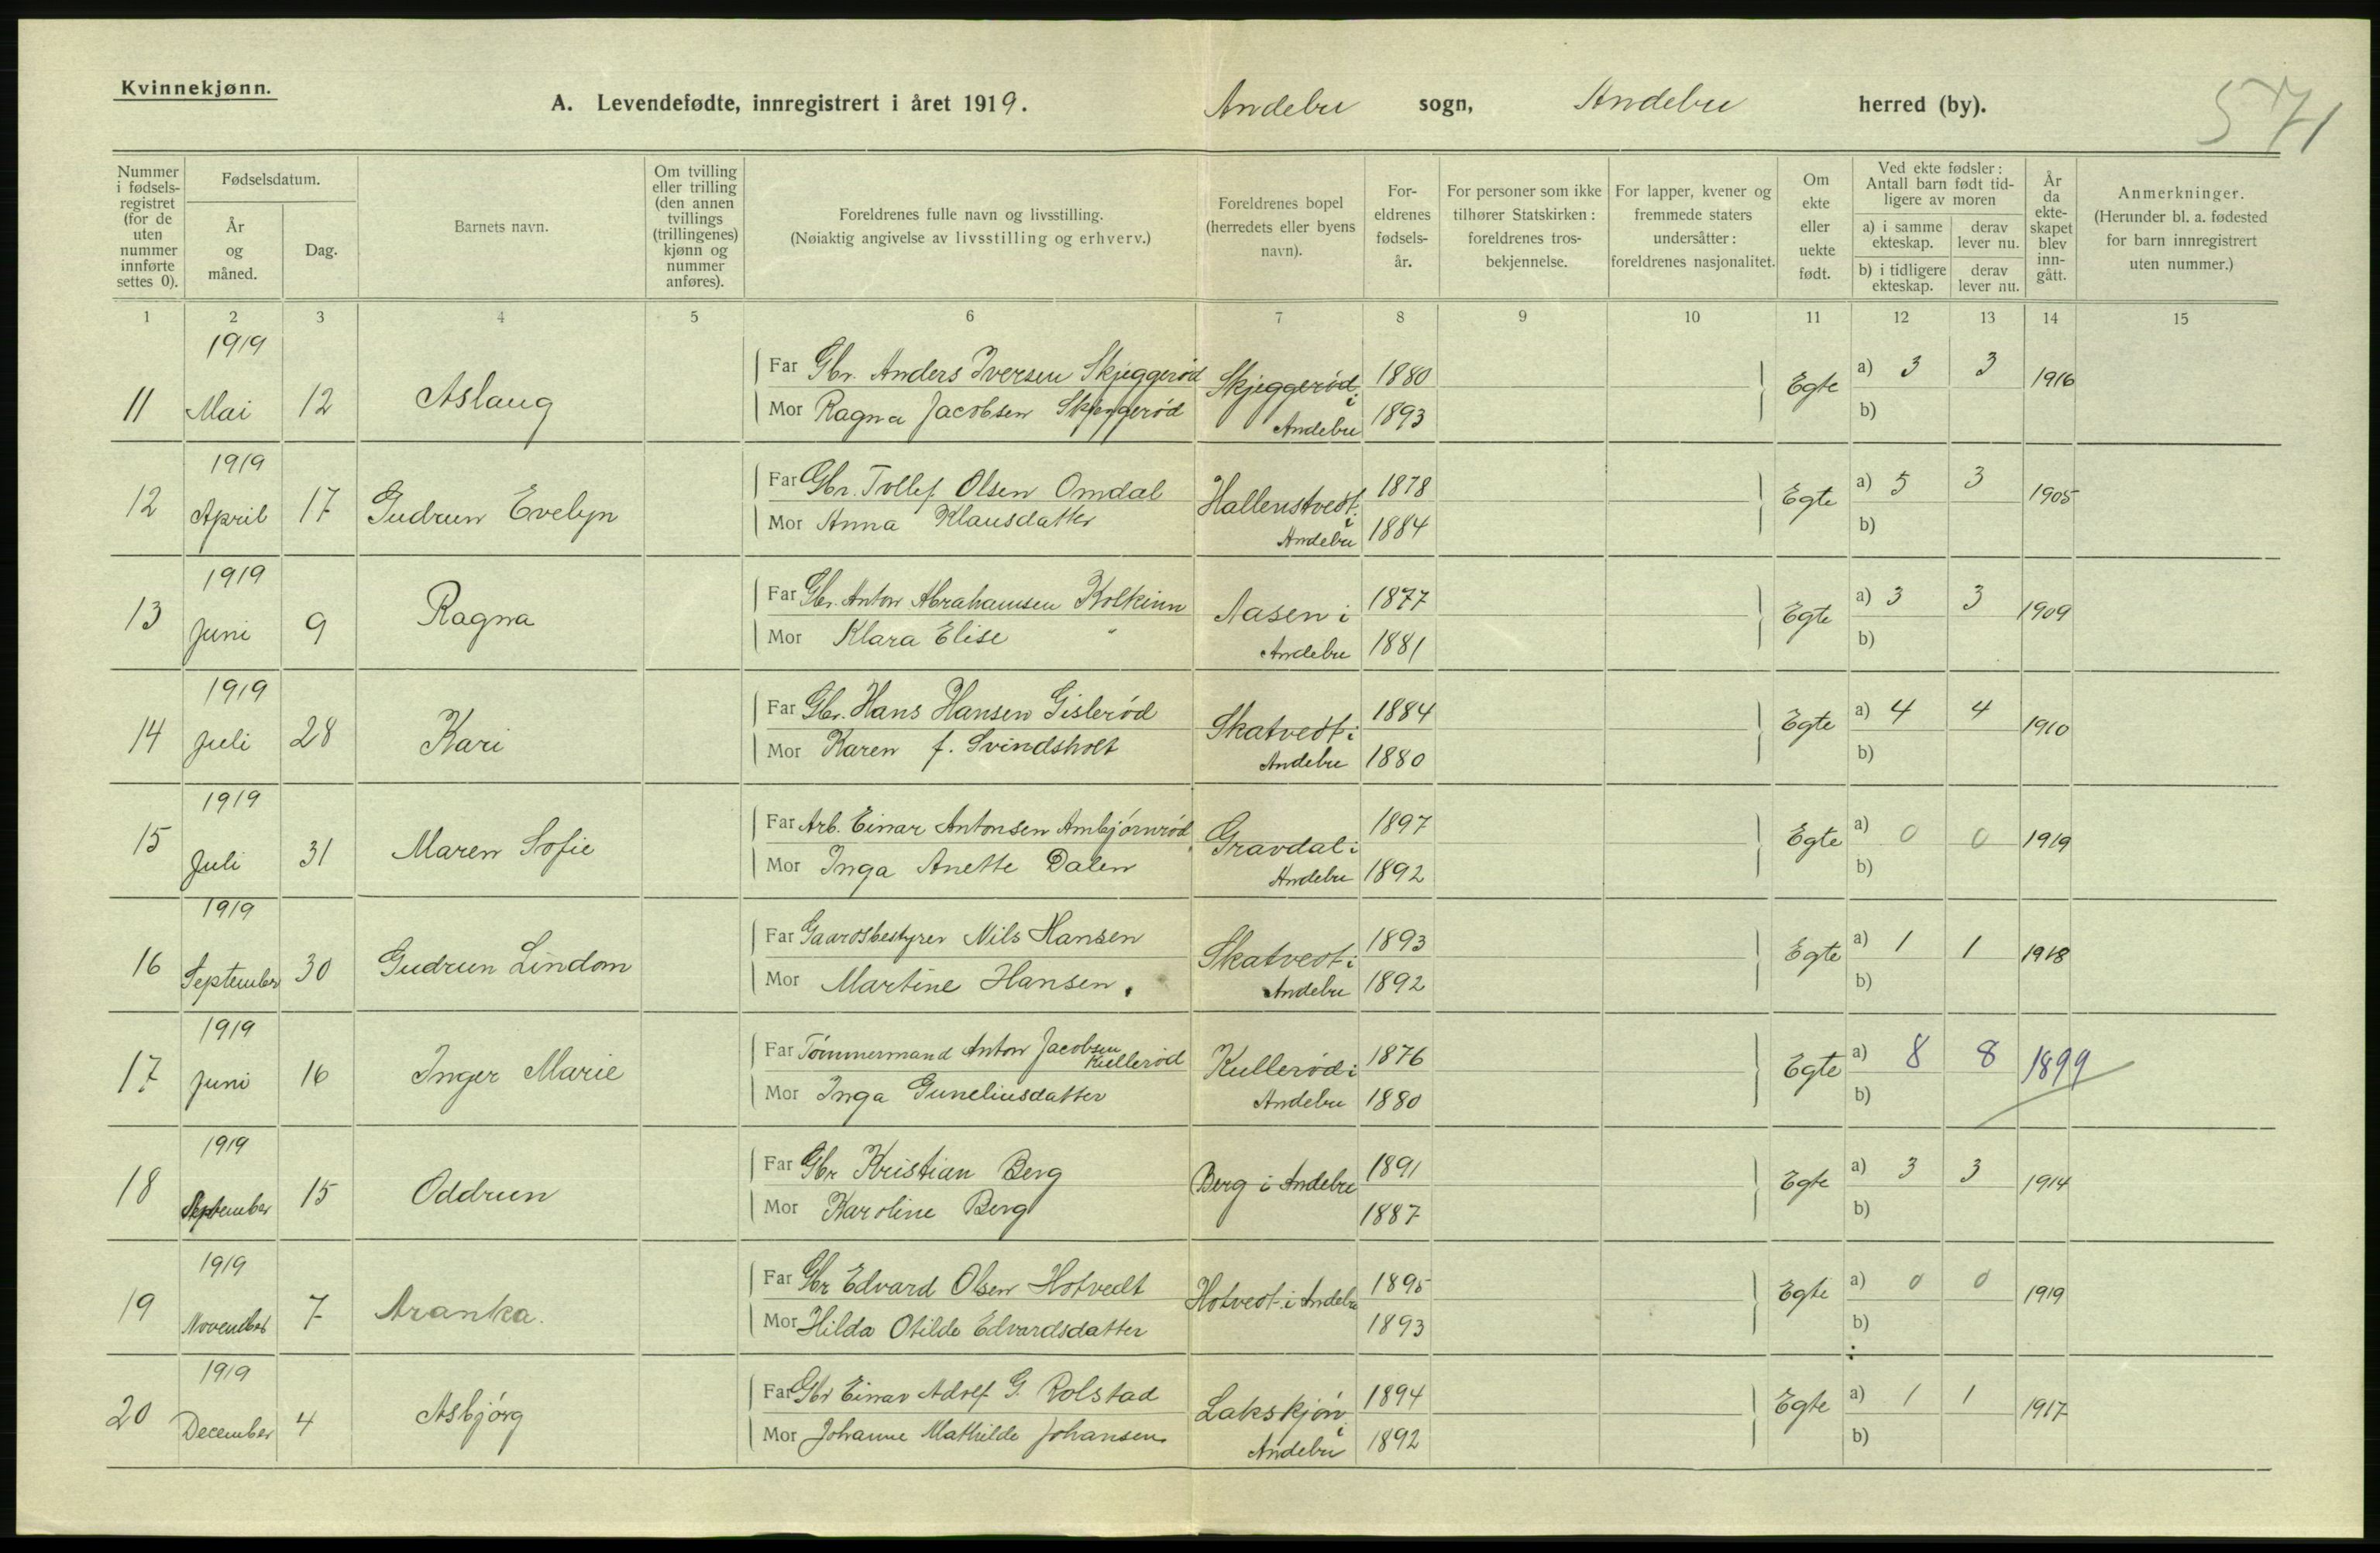 Kvinnekjønn.
A. Levendefødte, innregistrert i året 1919. Andebu sogn, Andebu herred (by).
571
Nummer i fødsels- registret (for de uten nummer innførte settes 0).
Fødselsdatum.
År og måned.
Dag.
Barnets navn.
Om tvilling eller trilling (den annen tvillings (trillingenes) kjønn og nummer anføres).
Foreldrenes fulle navn og livsstilling.
(Nøiaktig angivelse av livsstilling og erhverv.)
Foreldrenes bopel (herredets eller byens navn).
For- eldrenes fødsels- år.
For personer som ikke tilhører Statskirken: foreldrenes tros- bekjennelse.
For lapper, kvener og fremmede staters undersåtter: foreldrenes nasjonalitet.
Om ekte eller uekte født.
Ved ekte fødsler: Antall barn født tid- ligere av moren
a) i samme ekteskap. derav lever nu.
b) i tidligere ekteskap. derav lever nu.
År da ekte- skapet blev inn- gått.
Anmerkninger.
(Herunder bl. a. fødested for barn innregistrert uten nummer.)
1 2 3 4 5 6 7 8 9 10 11 12 13 14 15
1919
Far Gbr. Anders Iversen Skjeggerød Skjeggerød i 1880 a) 3 3
11 Mai 12 Aslaug Egte 1916
Mor Ragna Jacobsen Skjeggerød Andebu 1893 b)
1919
Far Gbr. Tollef Olsen Omdal Hallenstvedt i 1878 a) 5 3
12 April 17 Gudrun Evelyn Egte 1905
Mor Anna Klausdatter Andebu 1884 b)
1919
Far Gbr. Anton Abrahamsen Kolkinn Aasen i 1877 a) 3 3
13 Juni 9 Ragna Egte 1909
Mor Klara Elise " Andebu 1881 b)
1919
Far Gbr. Hans Hansen Gislerød Skatvedt i 1884 a) 4 4
14 Juli 28 Kari Egte 1910
Mor Karen f. Svindsholt Andebu 1880 b)
1919
Far Arb. Einar Antonsen Ambjørnrød Gravdal i 1897 a) 0 0
15 Juli 31 Maren Sofie Egte 1919
Mor Inga Anette Dalen Andebu 1892 b)
1919
Far Gaardsbestyrer Nils Hansen Skatvedt i 1893 a) 1 1
16 September 30 Gudrun Lindom Egte 1918
Mor Martine Hansen. Andebu 1892 b)
1919
Far Tømmermand Anton Jacobsen Kullerød Kullerød i 1876 a) 8 8
17 Juni 16 Inger Marie Egte 1899
Mor Inga Guneliusdatter Andebu 1880 b)
1919
Far Gbr Kristian Berg Berg i Andebu 1891 a) 3 3
18 September 15 Oddrun Egte 1914
Mor Karoline Berg 1887 b)
1919
Far Gbr Edvard Olsen Hotvedt Hotvedt i Andebu 1895 a) 0 0
19 November 7 Aranka. Egte 1919
Mor Hilda Otilde Edvardsdatter 1893 b)
1919
Far Gbr Einar Adolf G. Rolstad Lakskjøn i 1894 a) 1 1
20 December 4 Asbjørg Egte 1917
Mor Johanne Mathilde Johansen Andebu 1892 b)